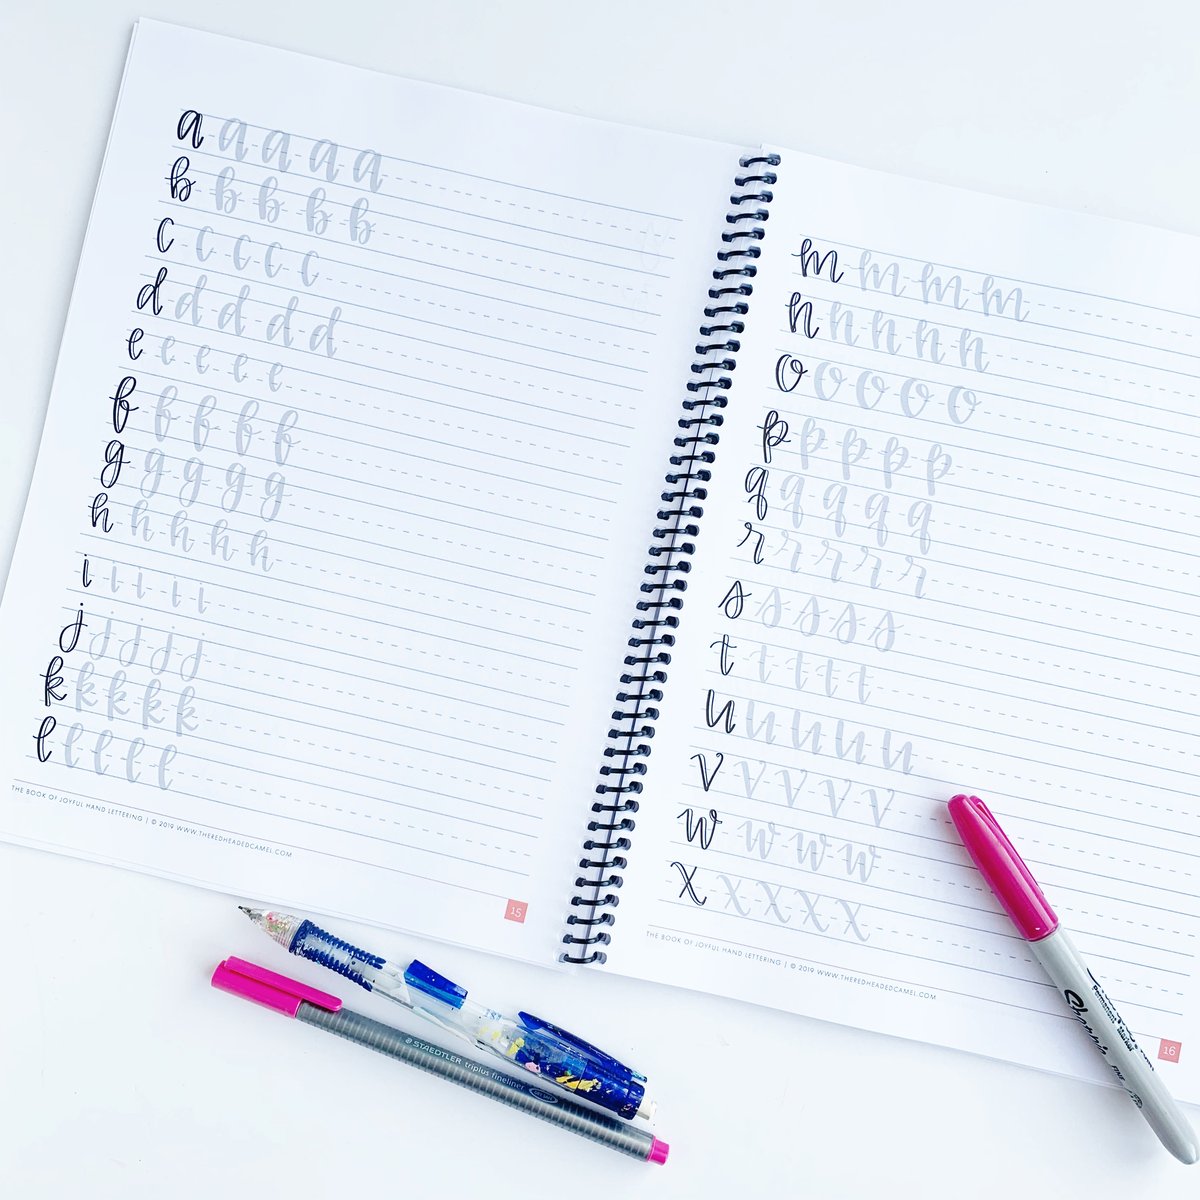 a a a a a
b b b b b
c c c c c
d d d d d
e e e e e
f f f f f
g g g g g
h h h h h
i i i i i
j j j j j
k k k k k
l l l l l
THE BOOK OF JOYFUL HAND LETTERING | © 2019 WWW.THEREDHEADEDCAMEL.COM
15
m m m m
n n n n n
o o o o o
p p p p p
q q q q q
r r r r r
s s s s s
t t t t t
u u u u u
v v v v v
w w w w
x x x x x
THE BOOK OF JOYFUL HAND LETTERING | © 2019 WWW.THEREDHEADEDCAMEL.COM
16
STAEDTLER triplus fineliner
Sharpie FINE